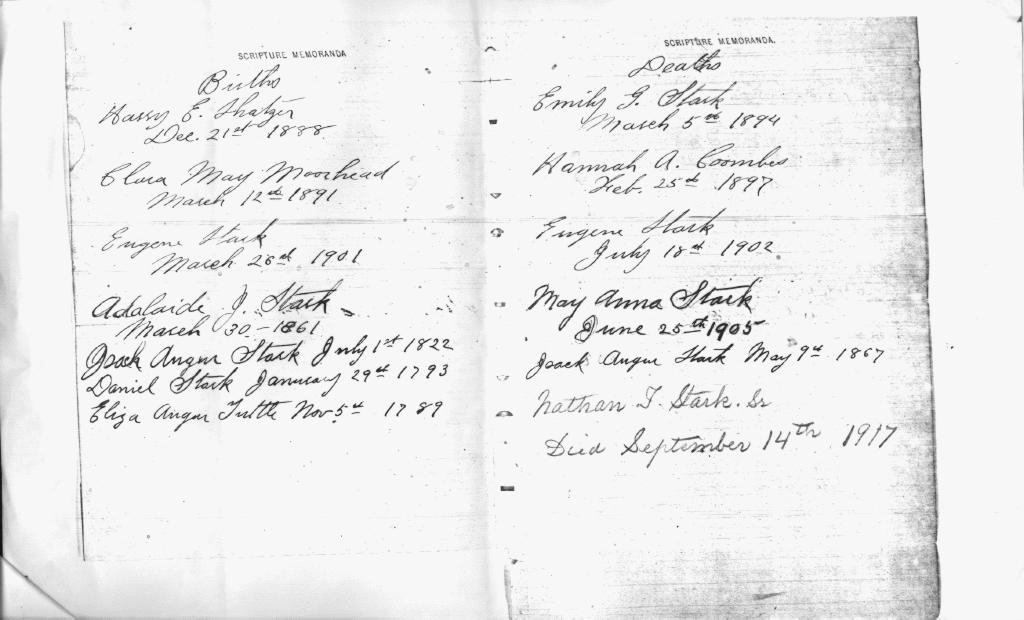 SCRIPTURE MEMORANDA
Births
Harry E. Shatzer
Dec. 21st 1888
Clara May Moorhead
March 12th 1891
Eugene Stark
March 28th 1901
Adelaide J. Stark
March 30 - 1861
Angur Stark July 1st 1822
Daniel Stark January 29th 1793
Eliza Angur Tuttle Nov 5th 1789
SCRIPTURE MEMORANDA.
Deaths
Emily G. Stark
March 5th 1894
Hannah A. Coombes
Feb. 25th 1897
Eugene Stark
July 18th 1902
May Anna Stark
June 25th 1905
Angur Stark May 9th 1867
Nathan T. Stark. Sr
Died September 14th 1917